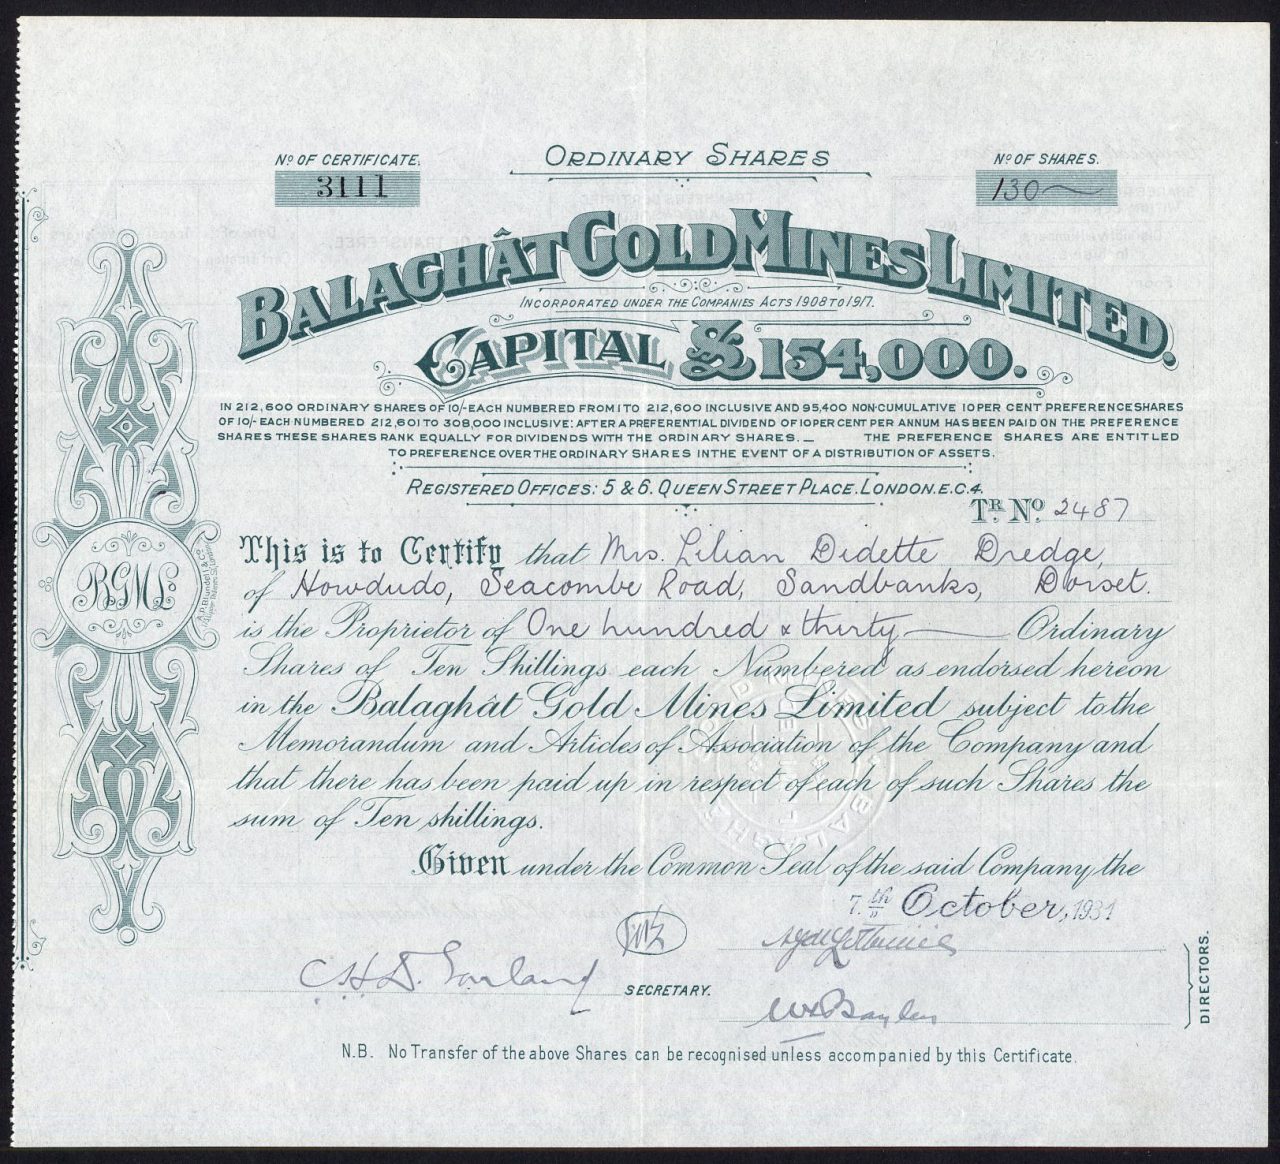 Nº OF CERTIFICATE. ORDINARY SHARES Nº OF SHARES.
3111 130
BALAGHÂT GOLD MINES LIMITED.
INCORPORATED UNDER THE COMPANIES ACTS 1908 TO 1917.
CAPITAL £154,000.
IN 212,600 ORDINARY SHARES OF 10/- EACH NUMBERED FROM 1 TO 212,600 INCLUSIVE AND 95,400 NON-CUMULATIVE 10 PER CENT PREFERENCE SHARES
OF 10/- EACH NUMBERED 212,601 TO 308,000 INCLUSIVE: AFTER A PREFERENTIAL DIVIDEND OF 10 PER CENT PER ANNUM HAS BEEN PAID ON THE PREFERENCE
SHARES THESE SHARES RANK EQUALLY FOR DIVIDENDS WITH THE ORDINARY SHARES. _ THE PREFERENCE SHARES ARE ENTITLED
TO PREFERENCE OVER THE ORDINARY SHARES IN THE EVENT OF A DISTRIBUTION OF ASSETS.
REGISTERED OFFICES: 5 & 6. QUEEN STREET PLACE. LONDON. E.C.4.
TR. Nº. 2487
This is to Certify that Mrs. Lilian Didette Dredge,
of Howdudo, Seacombe Road, Sandbanks, Dorset.
is the Proprietor of One hundred & thirty Ordinary
Shares of Ten Shillings each Numbered as endorsed hereon
in the Balaghât Gold Mines Limited subject to the
Memorandum and Articles of Association of the Company and
that there has been paid up in respect of each of such Shares the
sum of Ten shillings.
Given under the Common Seal of the said Company the
7.th October, 1931
BGML
SECRETARY.
DIRECTORS.
N.B. No Transfer of the above Shares can be recognised unless accompanied by this Certificate.